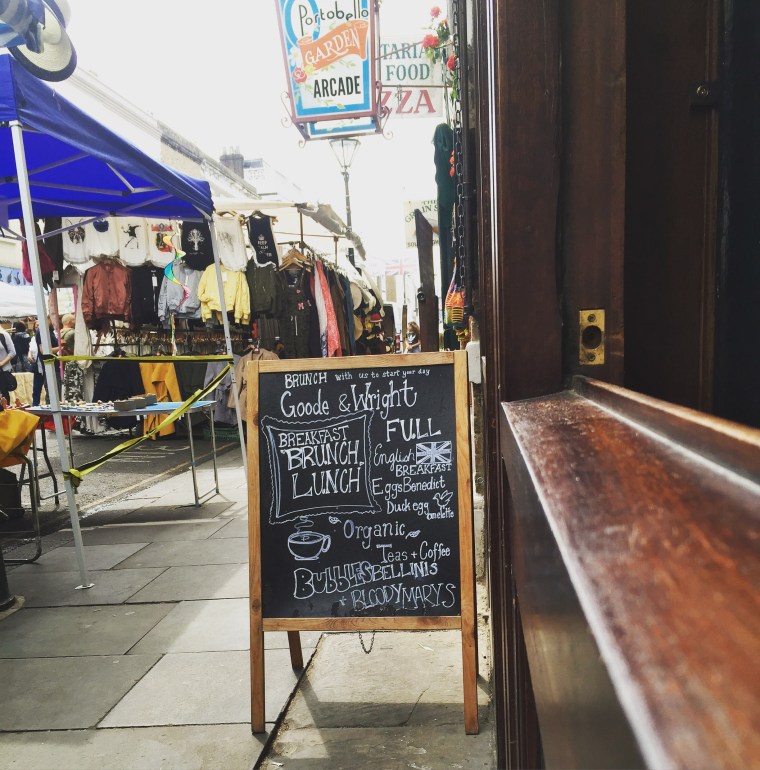 Portobello
GARDEN
ARCADE
TARIA
FOOD
ZZA
BRUNCH with us to start your day
Goode & Wright
BREAKFAST
BRUNCH,
LUNCH
FULL
English
BREAKFAST
Eggs Benedict
Duck egg
omelette
Organic
Teas + Coffee
BUBBLES BELLINIS
+ BLOODY MARYS